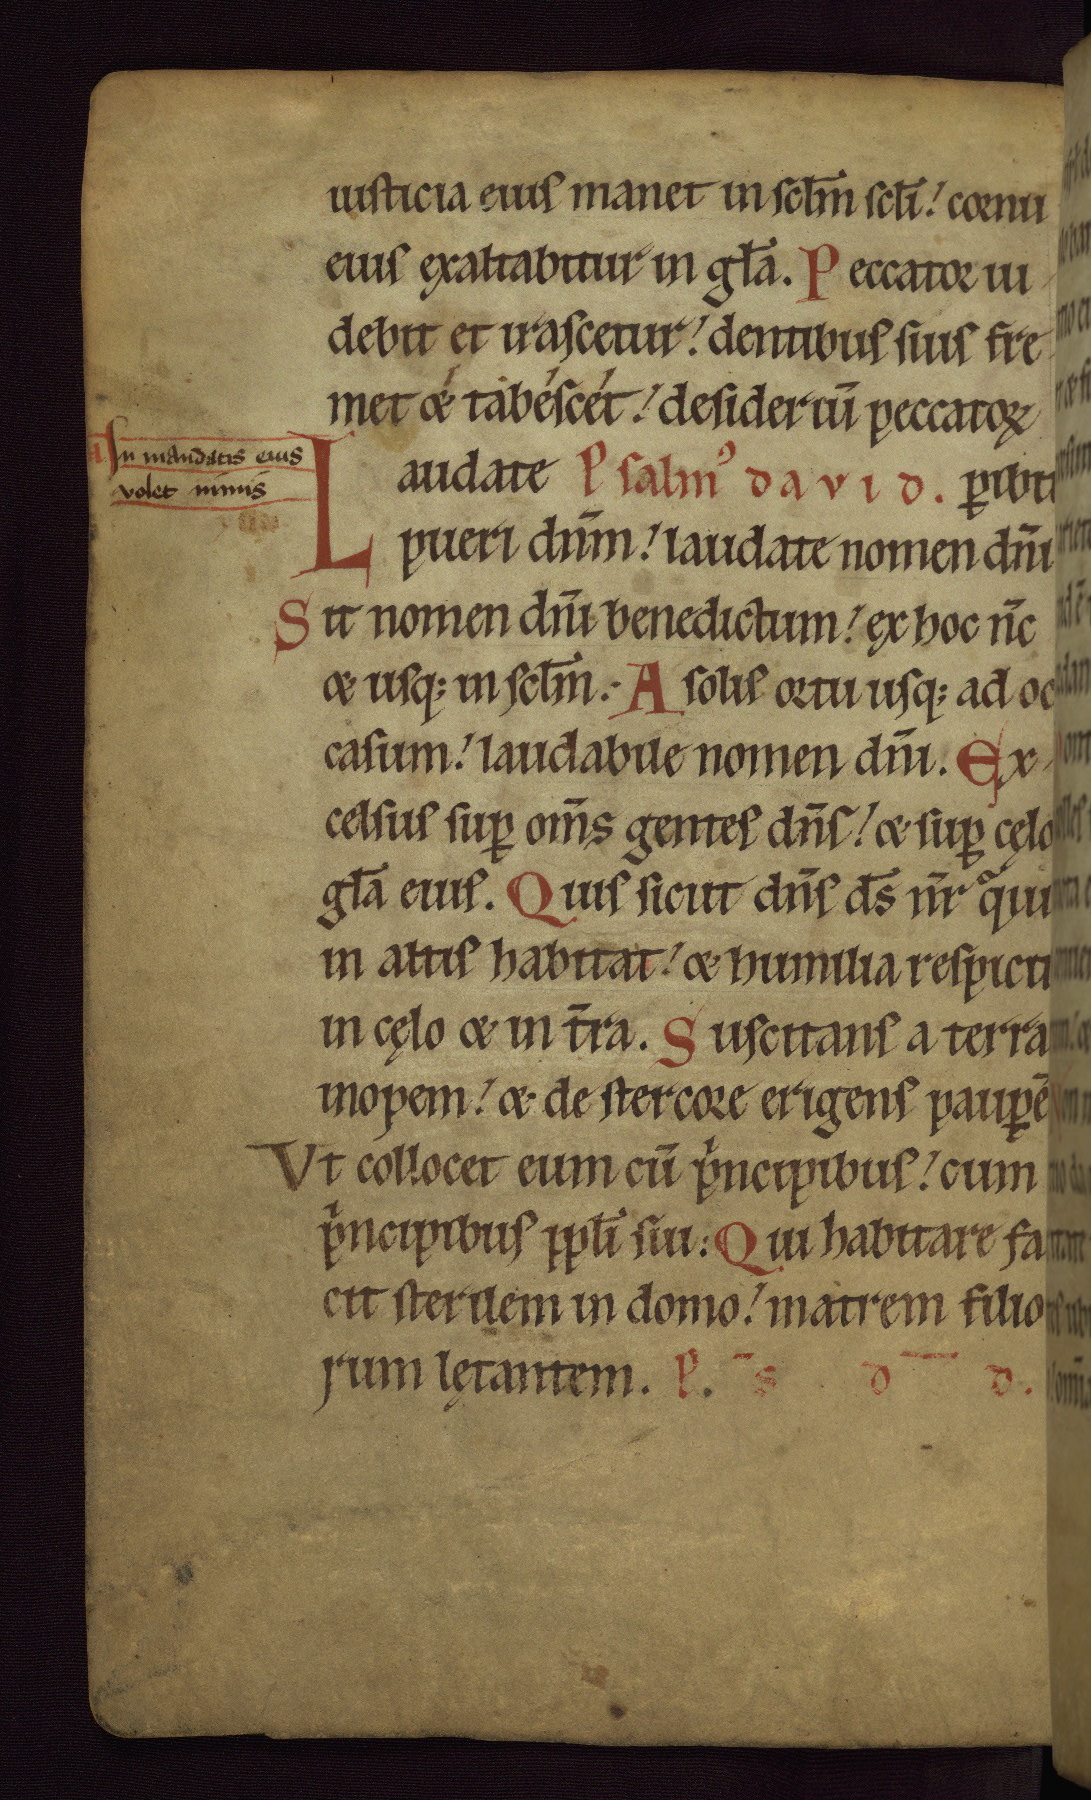 iusticia eius manet in sc̄lm sc̄li! cornu
eius exaltabitur in gl̄a. Peccator ui
debit et irascetur! dentibus suis fre
met & tabescet! desideriū peccatoꝝ
a. In mandatis eius
volet nimis
Laudate Psalmꝰ david. ꝑibit
pueri dn̄m! laudate nomen dn̄i
Sit nomen dn̄i benedictum! ex hoc nc̄
& usq; in sc̄lm. A solis ortu usq; ad oc
casum! laudabile nomen dn̄i. Ex
celsus suꝑ om̄s gentes dn̄s! & suꝑ cęlo
gl̄a eius. Quis sicut dn̄s ds̄ nr̄ qui
in altis habitat! & humilia respicit
in cęlo & in t̄ra. Suscitans a terra
inopem! & de stercore erigens pauꝑē
Vt collocet eum cū pͥncipibus! cum
pͥncipibus ppl̄i sui: Qui habitare fa
cit sterilem in domo! matrem filio
rum lętantem. P. s̄ d̄ d.